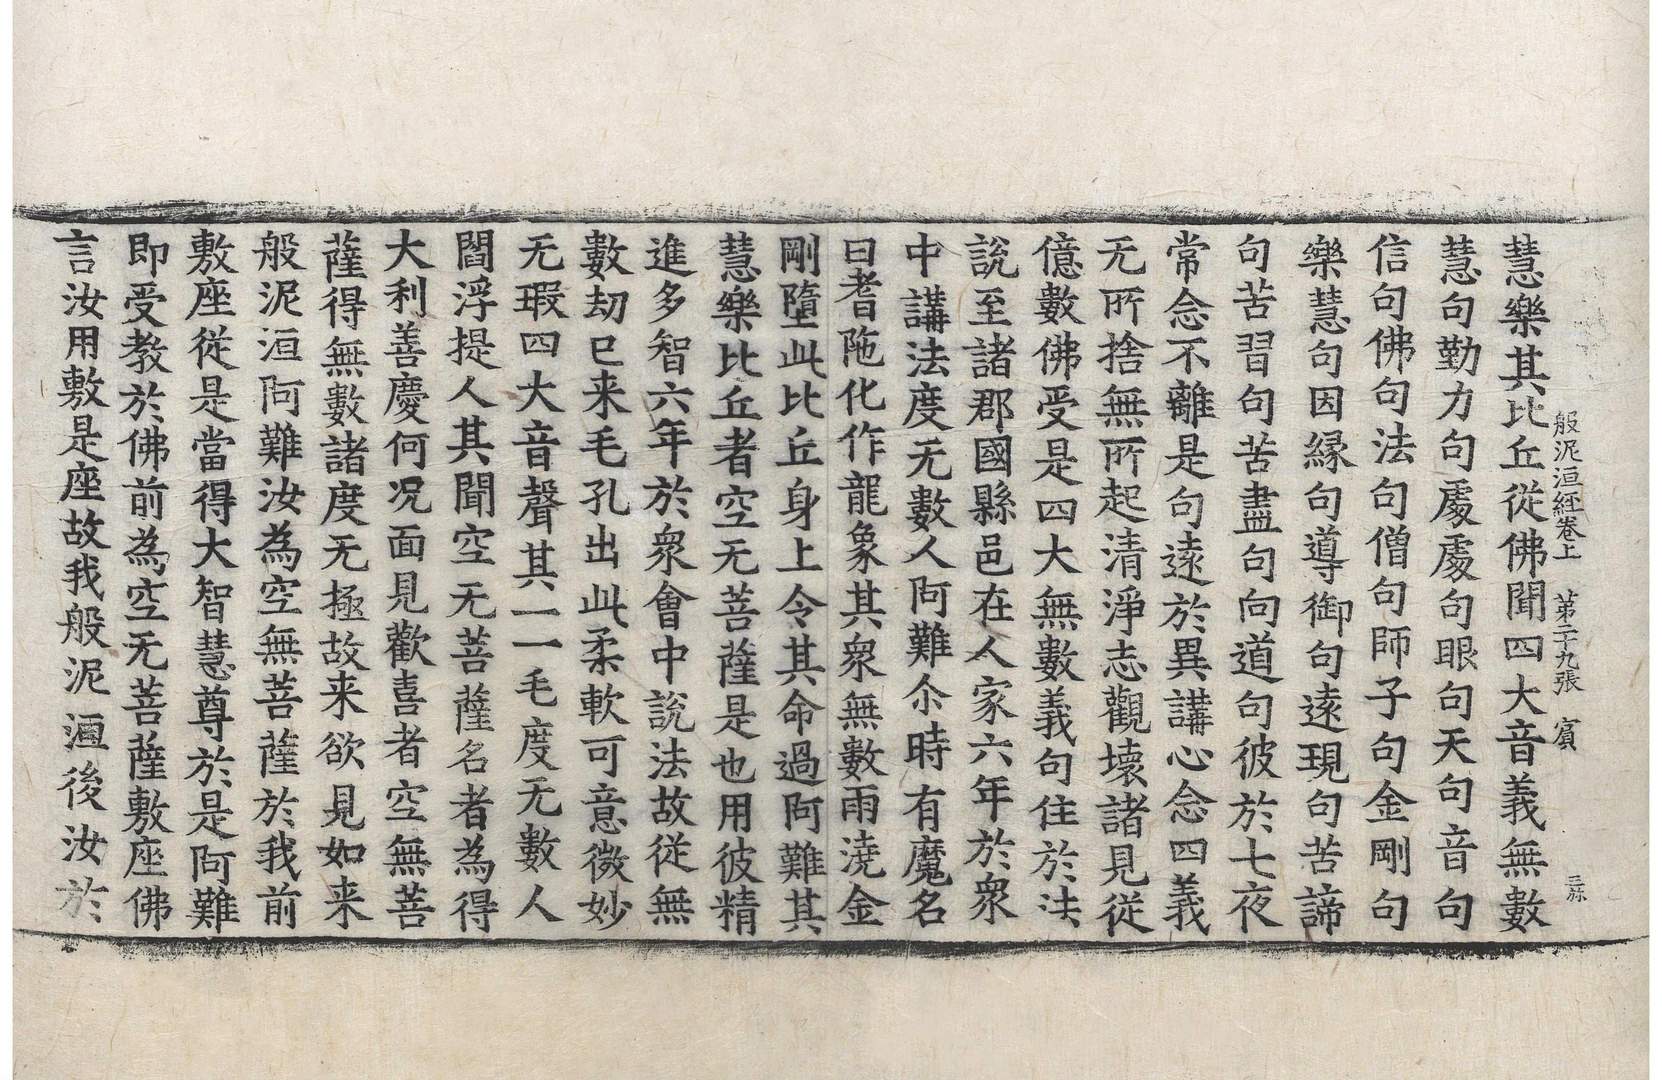 般泥洹經卷上　第二十九張　賔
三㳽
慧樂其比丘從佛聞四大音義無數
慧句勤力句處處句眼句天句音句
信句佛句法句僧句師子句金剛句
樂慧句因縁句導御句遠現句苦諦
句苦習句苦盡句向道句彼於七夜
常念不離是句遠於異講心念四義
无所捨無所起清淨志觀壞諸見從
億數佛受是四大無數義句住於法
說至諸郡國縣邑在人家六年於衆
中講法度无數人阿難尒時有魔名
曰耆陁化作龍象其衆無數雨澆金
剛墮此比丘身上令其命過阿難其
慧樂比丘者空无菩薩是也用彼精
進多智六年於衆會中說法故從無
數劫已来毛孔出此柔軟可意微妙
无瑕四大音聲其一一毛度无數人
閻浮提人其聞空无菩薩名者為得
大利善慶何况面見歡喜者空無菩
薩得無數諸度无極故来欲見如来
般泥洹阿難汝為空無菩薩於我前
敷座從是當得大智慧尊於是阿難
即受教於佛前為空无菩薩敷座佛
言汝用敷是座故我般泥洹後汝於